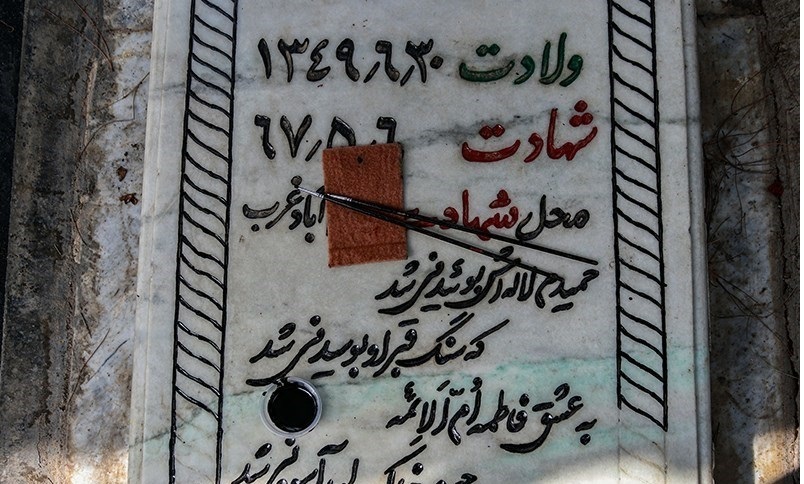 ولادت ۱۳۴۹٫۶٫۳۰
شهادت ۶۷٫۵٫۶
محل شهادت آباد غرب
حمیدم لاله اش بوئیدنی شد
که سنگ قبر او بوسیدنی شد
به عشق فاطمه اُمّ اَلائِمّه